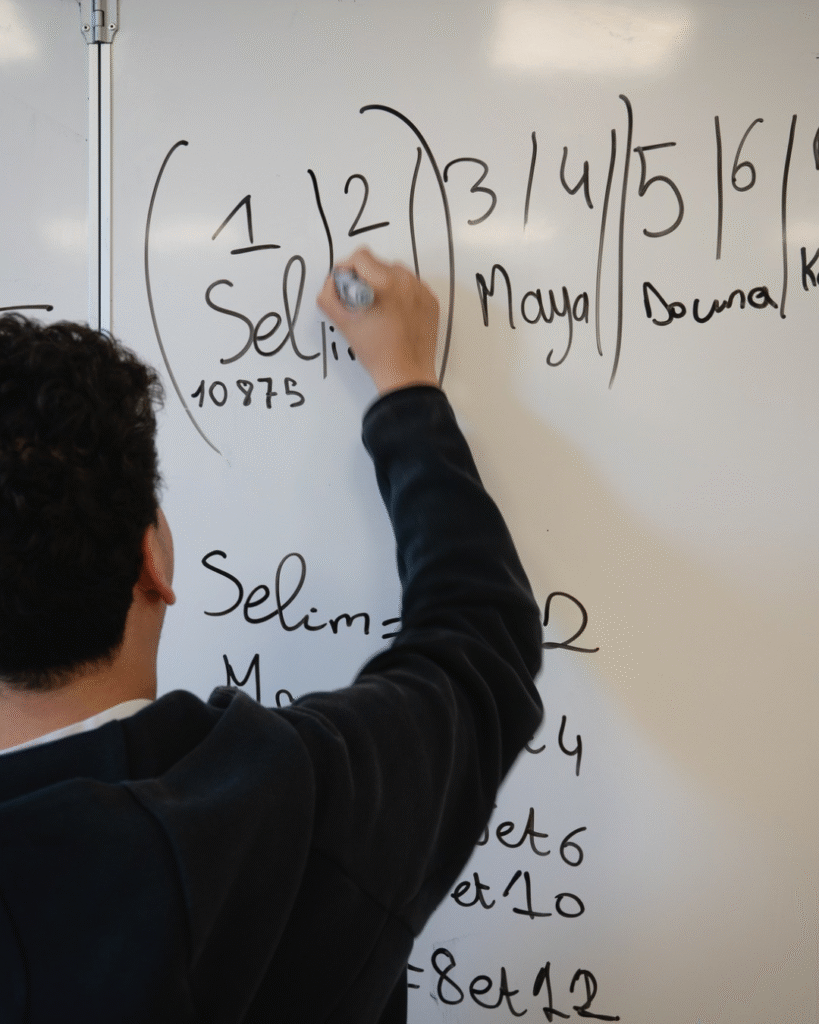 (1|2)3|4||5|6|
Selim Maya Douna
10875
Selim= 2
4
et 6
et 10
=8et12